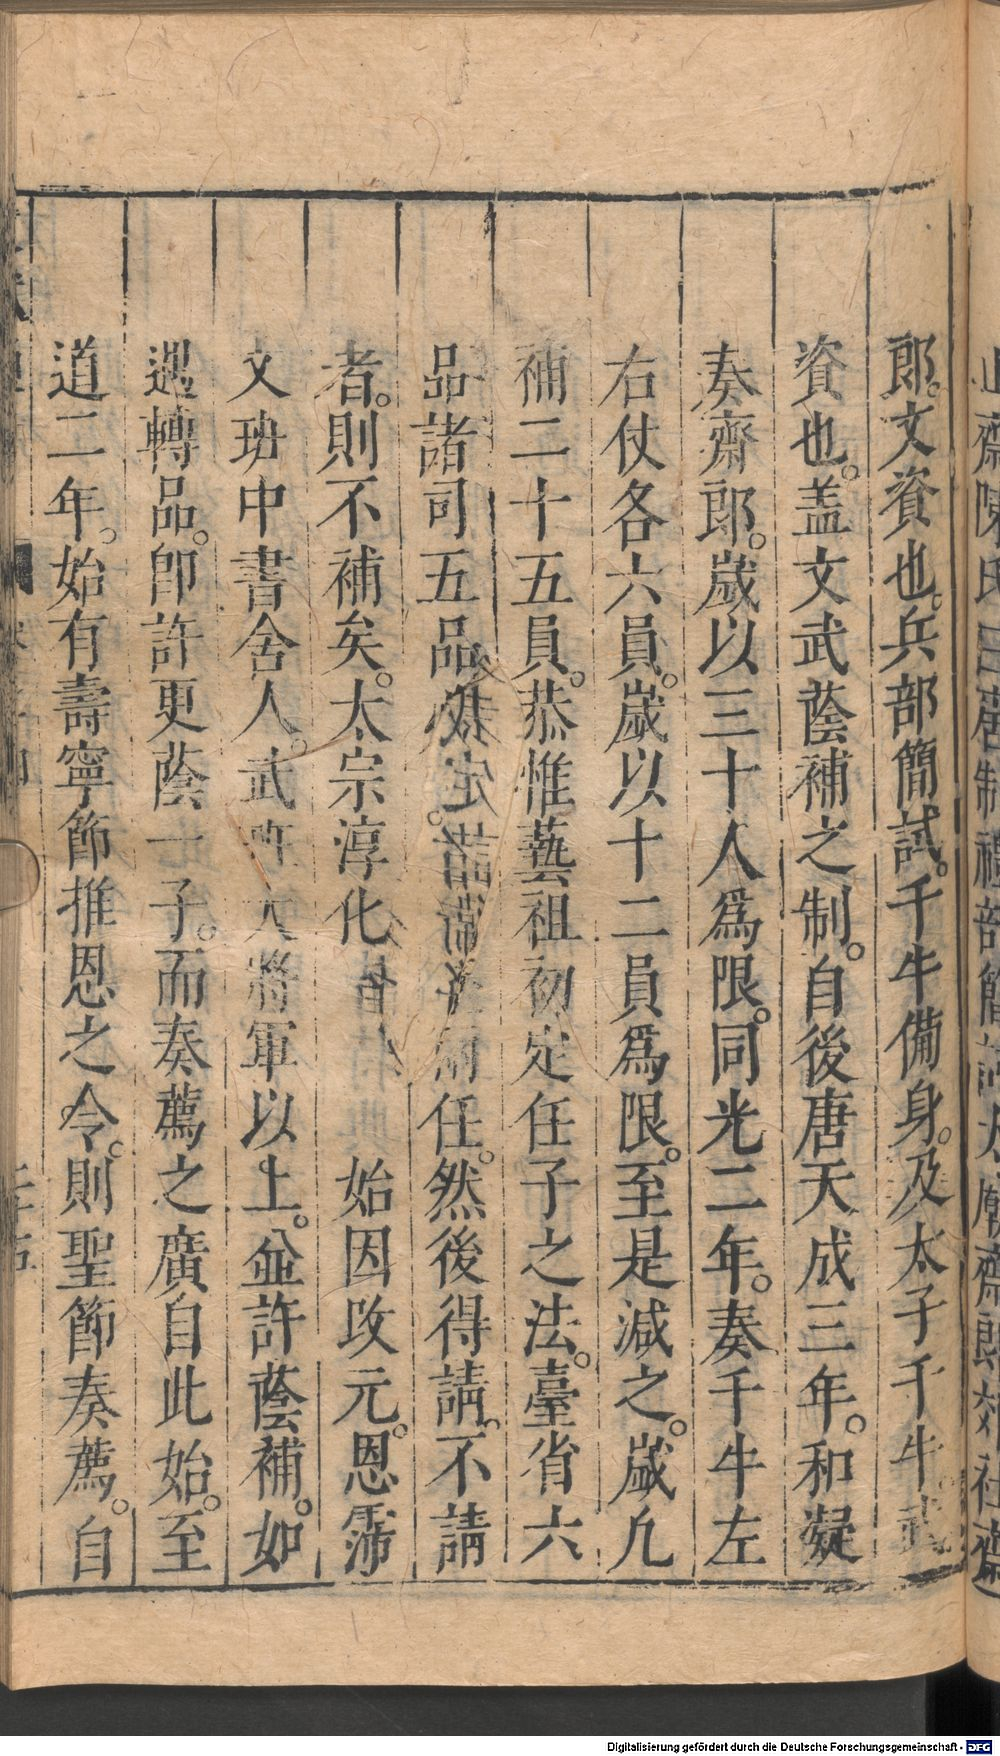 郎。文資也。兵部簡試。千牛備身。及太子千牛武
資也。盖文武蔭補之制。自後唐天成三年。和凝
奏齋郎。歲以三十人爲限。同光二年。奏千牛左
右仗各六員。歲以十二員爲限。至是減之。歲九
補二十五員。恭惟藝祖初定任子之法。臺省六
品諸司五品 任。然後得請。不請
者。則不補矣。太宗淳化 始因攺元。恩霈
文班中書舍人。武 大將軍以上。並許蔭補。如
遇轉品。卽許更蔭一子。而奏薦之廣自此始。至
道二年。始有壽寧節推恩之令。則聖節奏薦。自
Digitalisierung gefördert durch die Deutsche Forschungsgemeinschaft - DFG